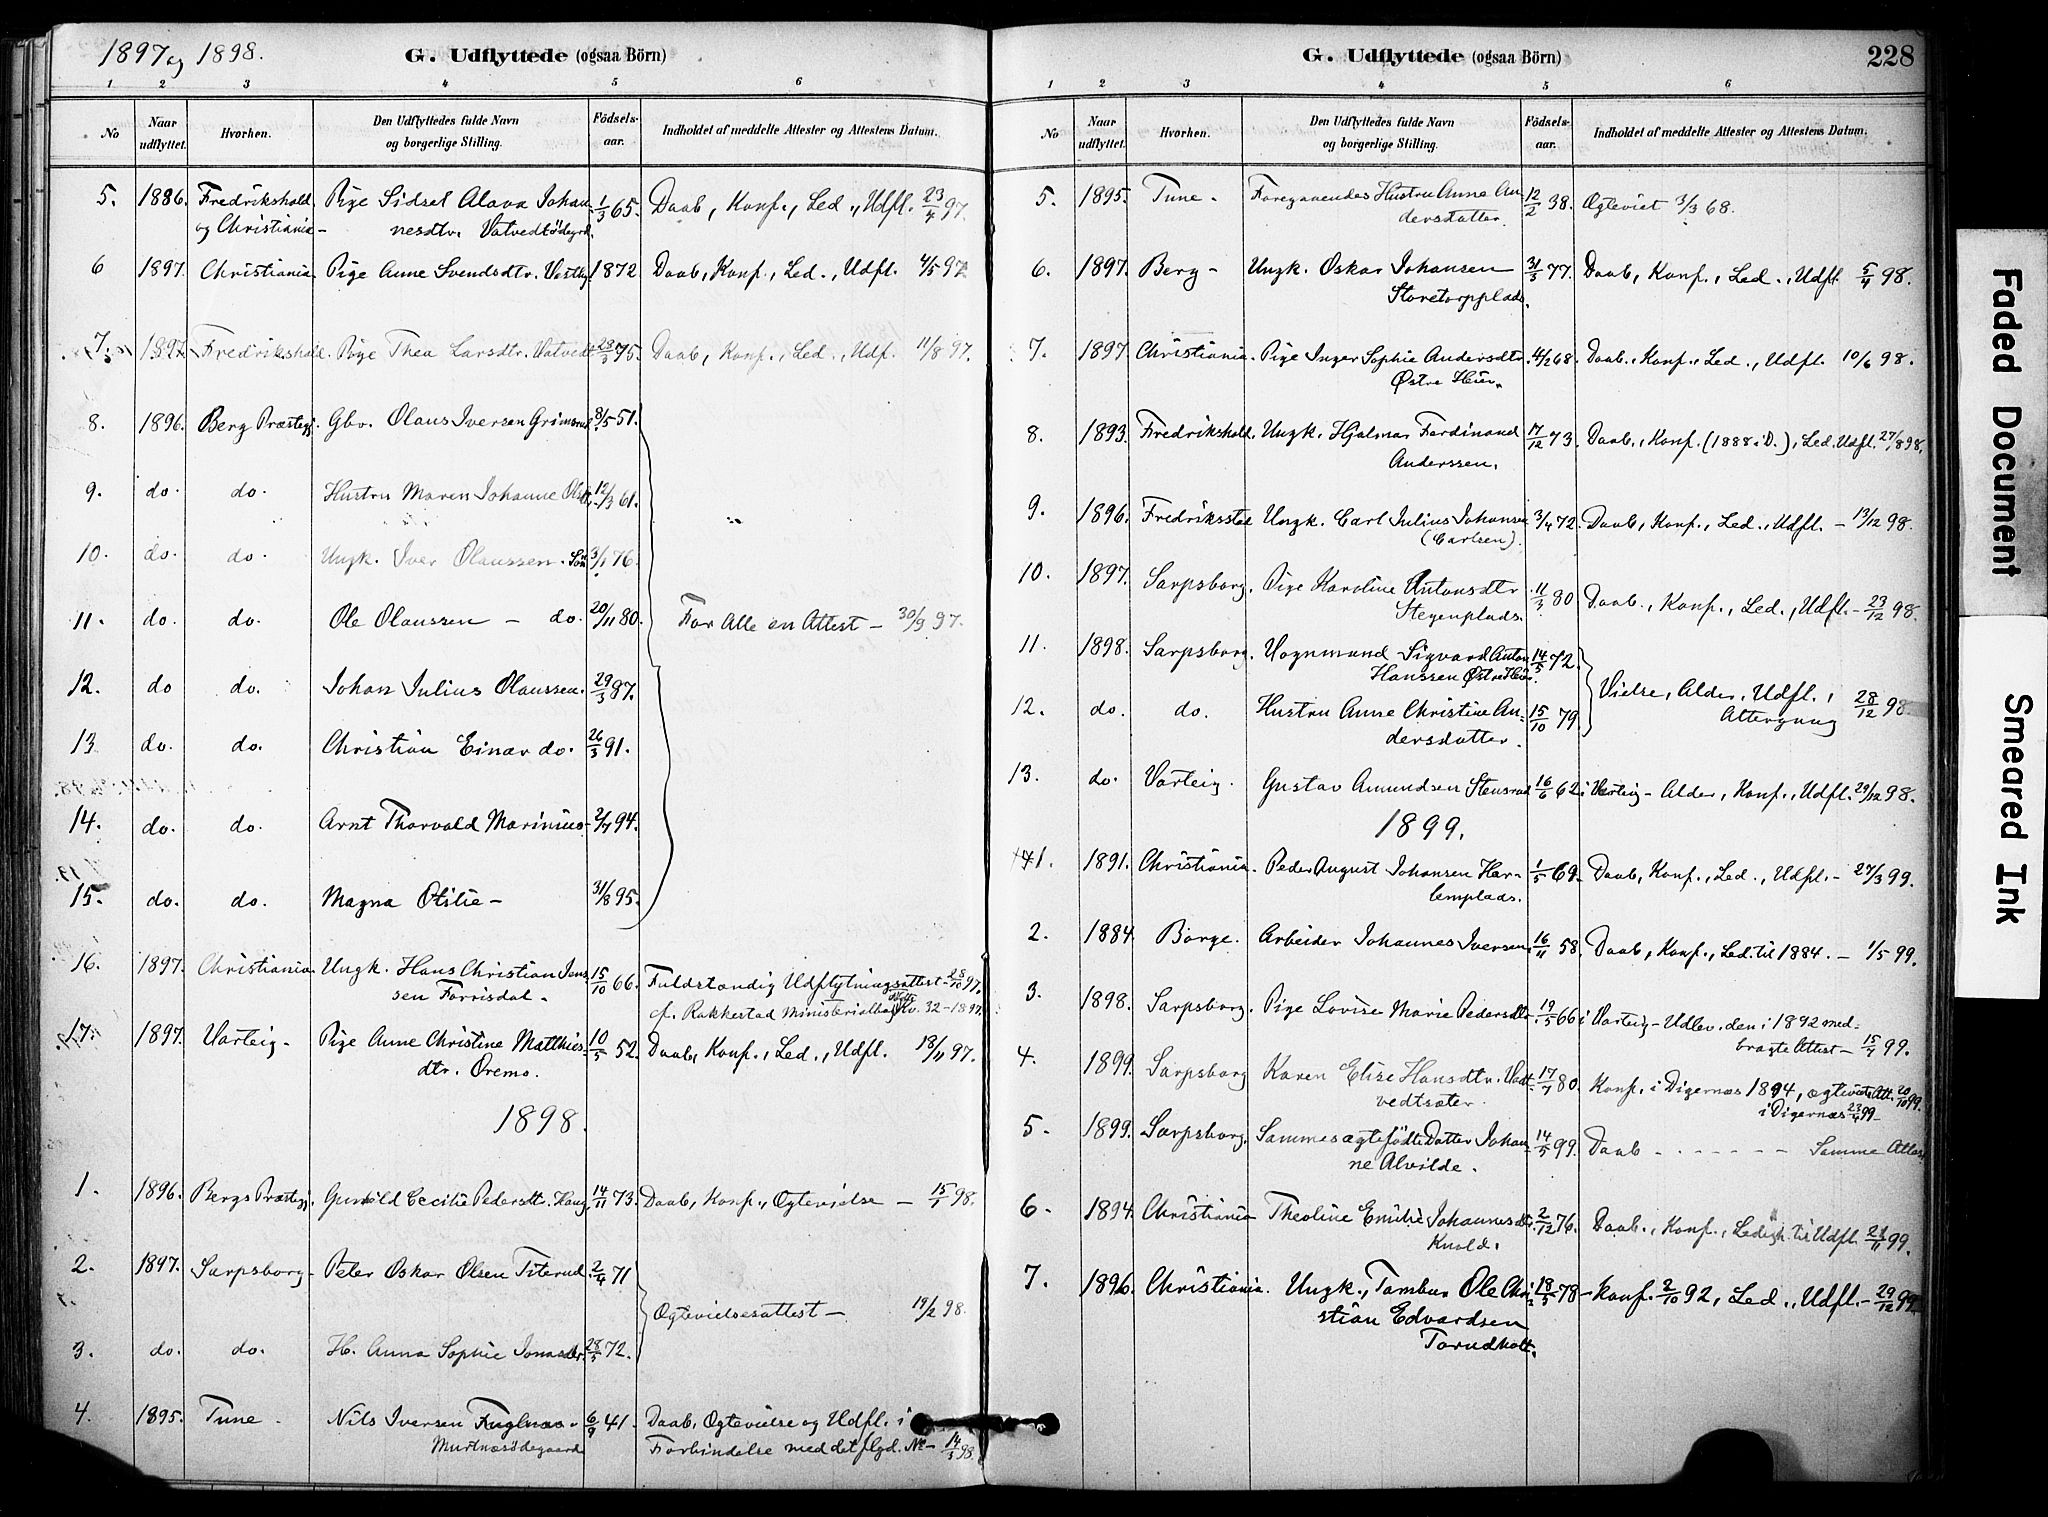 1897 og 1898.
G. Udflyttede (ogsaa Börn)
1 2 3 4 5 6
No
Naar udflyttet.
Hvorhen.
Den Udflyttedes fulde Navn og borgerlige Stilling.
Födsels-aar.
Indholdet af meddelte Attester og Attestens Datum.
5. 1886. Fredrikshald Pige Sidsel Alava Johan- 1/3 65. Daab, Konf., Led., Udfl. 23/4 97.
og Christiania - nesdtr. Vatvedtødegrd.
6 1897. Christiania. Pige Anne Svendsdtr. 1872 Daab, Konf., Led., Udfl. 4/5 97.
7. 1897. Fredrikshald. Pige Thea Larsdtr. Vatvedt 28/3 75. Daab, Konf., Led., Udf. 11/8 97.
8. 1896. Berg Præstegj. Gbr. Olaus Iversen Grimsrud 8/5 51.
9. do. do. Hustru Maren Johanne Olsdtr. 12/3 61.
10. do. do. Ungk. Iver Olaussen. Søn 3/1 76.
11. do. do. Ole Olaussen - do. 20/11 80. For Alle en Attest - 30/9 97.
12. do do. Johan Julius Olaussen. 29/3 87.
13 do. do. Christian Einar do. 26/3 91.
14. do. do. Arnt Thorvald Marinius- 2/7 94.
15. do. do. Magna Otilie - 31/8 95.
16. 1897. Christiania. Ungk. Hans Christian Jens- 15/10 66. Fuldstændig Udflytningsattest - 28/10 97.
sen Forrisdal - cf. Rakkestad Ministerialbog No. 32 - 1897.
17. 1897. Varteig - Pige Anne Christine Matthies- 10/5 52. Daab, Konf., Led., Udfl. 18/11 97.
dtr. Oremo.
1898.
1. 1896. Bergs Præstegj. Gunild Cecilie Pedersdtr. Haug. 14/11 73. Daab, Konf., Ogtevielse - 15/1 98.
2. 1897. Sarpsborg - Peter Oskar Olsen Titerud. 2/4 71
Ogtevielsesattest - 19/2 98.
3. do. do. H. Anna Sophie Jonasdtr. 28/5 72.
4. 1895. Tune - Nils Iversen Fuglnæs - 6/9 41. Daab, Ogtevielse og Udfl. i
Murtnæsødegaard Forbindelse med det flgd. No - 14/3 98.
G. Udflyttede (ogsaa Börn)
228
1 2 3 4 5 6
No
Naar udflyttet.
Hvorhen.
Den Udflyttedes fulde Navn og borgerlige Stilling.
Födsels-aar.
Indholdet af meddelte Attester og Attestens Datum.
5. 1895. Tune - Foregaaendes Hustru Anne An- 12/2 38. Ogteviet 3/3 68.
dersdatter.
6. 1897. Berg - Ungk. Oskar Johansen 31/5 77. Daab, Konf., Led., Udfl. 5/4 98.
Storetorpplads.
7. 1897. Christiania. Pige Inger Sophie Andersdtr. 4/2 68. Daab, Konf., Led., Udfl. 10/6 98.
Østre Heier.
8. 1893. Fredrikshald. Ungk. Hjalmar Ferdinand 17/12 73. Daab, Konf. (1888 i D.), Led. Udfl. 27/8 98.
Anderssen.
9. 1896. Fredriksstad Ungk. Carl Julius Johansen 3/4 72. Daab, Konf., Led., Udfl. - 13/12 98.
(Carlsen).
10. 1897. Sarpsborg. Pige Karoline Antonsdtr 11/3 80 Daab, Konf., Led., Udfl. - 23/12 98.
Stegenplads.
11. 1898. Sarpsborg. Vognmand Sigvard Anton 14/5 72.
Hanssen Østre Heier. Vielse, Alder, Udfl., 28/12 98.
12. do. do. Hustru Anne Christine An- 15/10 79 Attergang
dersdatter.
13. do. Varteig. Gustav Amundsen Stensrud 16/6 62 i Varteig - Alder, Konf., Udfl. 29/12 98.
1899.
1. 1891. Christiania. Peder August Johansen Har- 1/5 69. Daab, Konf., Led., Udfl. - 27/3 99.
lemplads.
2. 1884. Borge. Arbeider Johannes Iversen. 16/11 58. Daab, Konf., Led. til 1884. - 1/5 99.
3. 1898. Sarpsborg. Pige Lovise Marie Pedersdtr. 19/5 66 i Varteig - Udlev. den i 1892 med-
bragte Attest - 15/7 99.
4. 1899. Sarpsborg Karen Elise Hansdtr. Vat- 17/7 80. Konf. i Digernæs 1894, ogteviet Att. 20/10 99.
vedtsæter. i Digernæs 23/4 99
5. 1899. Sarpsborg. Sammes ægtefødte Datter Johan- 14/5 99. Daab - - - - - - Samme Attest
ne Alvilde.
6. 1894. Christiania Theoline Emilie Johannesdtr. 2/12 76. Daab, Konf., Ledigh. til Udfl. 21/11 99.
Knold.
7. 1896. Christiania. Ungk., Tambur Ole Chri- 18/5 78 - Konf. 2/10 92, Led., Udfl. - 29/12 99.
stian Edvardsen
Torudholt.
Faded Document
Smeared Ink